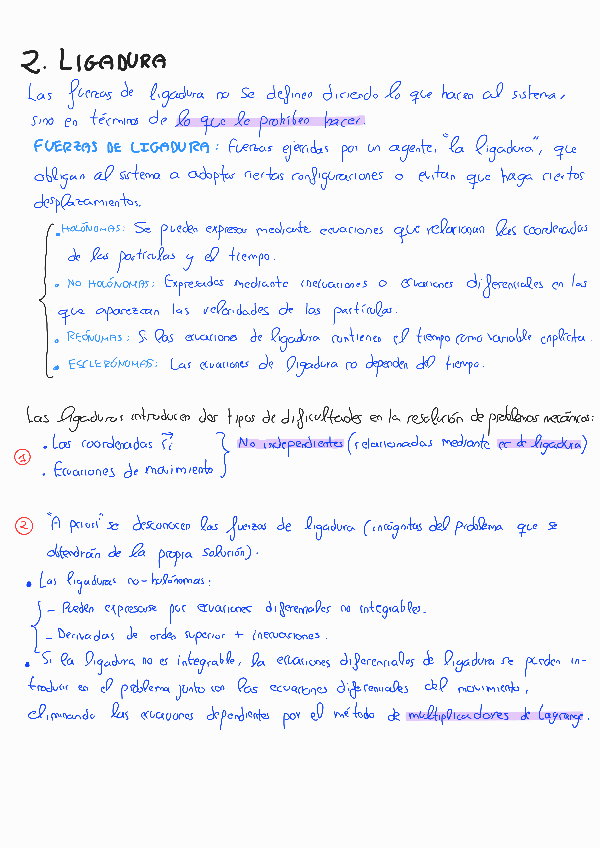 2. LIGADURA
Las fuerzas de ligadura no se definen diciendo lo que hacen al sistema,
sino en términos de lo que le prohiben hacer.
FUERZAS DE LIGADURA: Fuerzas ejercidas por un agente, "la ligadura", que
obligan al sistema a adoptar ciertas configuraciones o evitan que haga ciertos
desplazamientos.
• HOLÓNOMAS: Se pueden expresar mediante ecuaciones que relacionan las coordenadas
de las partículas y el tiempo.
• NO HOLÓNOMAS: Expresadas mediante inecuaciones o ecuaciones diferenciales en las
que aparezcan las velocidades de las partículas.
• REÓNOMAS: Si las ecuaciones de ligadura contienen el tiempo como variable explícita.
• ESCLERÓNOMAS: Las ecuaciones de ligadura no dependen del tiempo.
Las ligaduras introducen dos tipos de dificultades en la resolución de problemas mecánicos:
① • Las coordenadas r⃗i } No independientes (relacionadas mediante ec de ligadura)
• Ecuaciones de movimiento
② "A priori" se desconocen las fuerzas de ligadura (incógnitas del problema que se
obtendrán de la propia solución).
• Las ligaduras no-holónomas:
– Pueden expresarse por ecuaciones diferenciales no integrables.
– Derivadas de orden superior + inecuaciones.
• Si la ligadura no es integrable, la ecuaciones diferenciales de ligadura se pueden in-
troducir en el problema junto con las ecuaciones diferenciales del movimiento,
eliminando las ecuaciones dependientes por el método de multiplicadores de Lagrange.